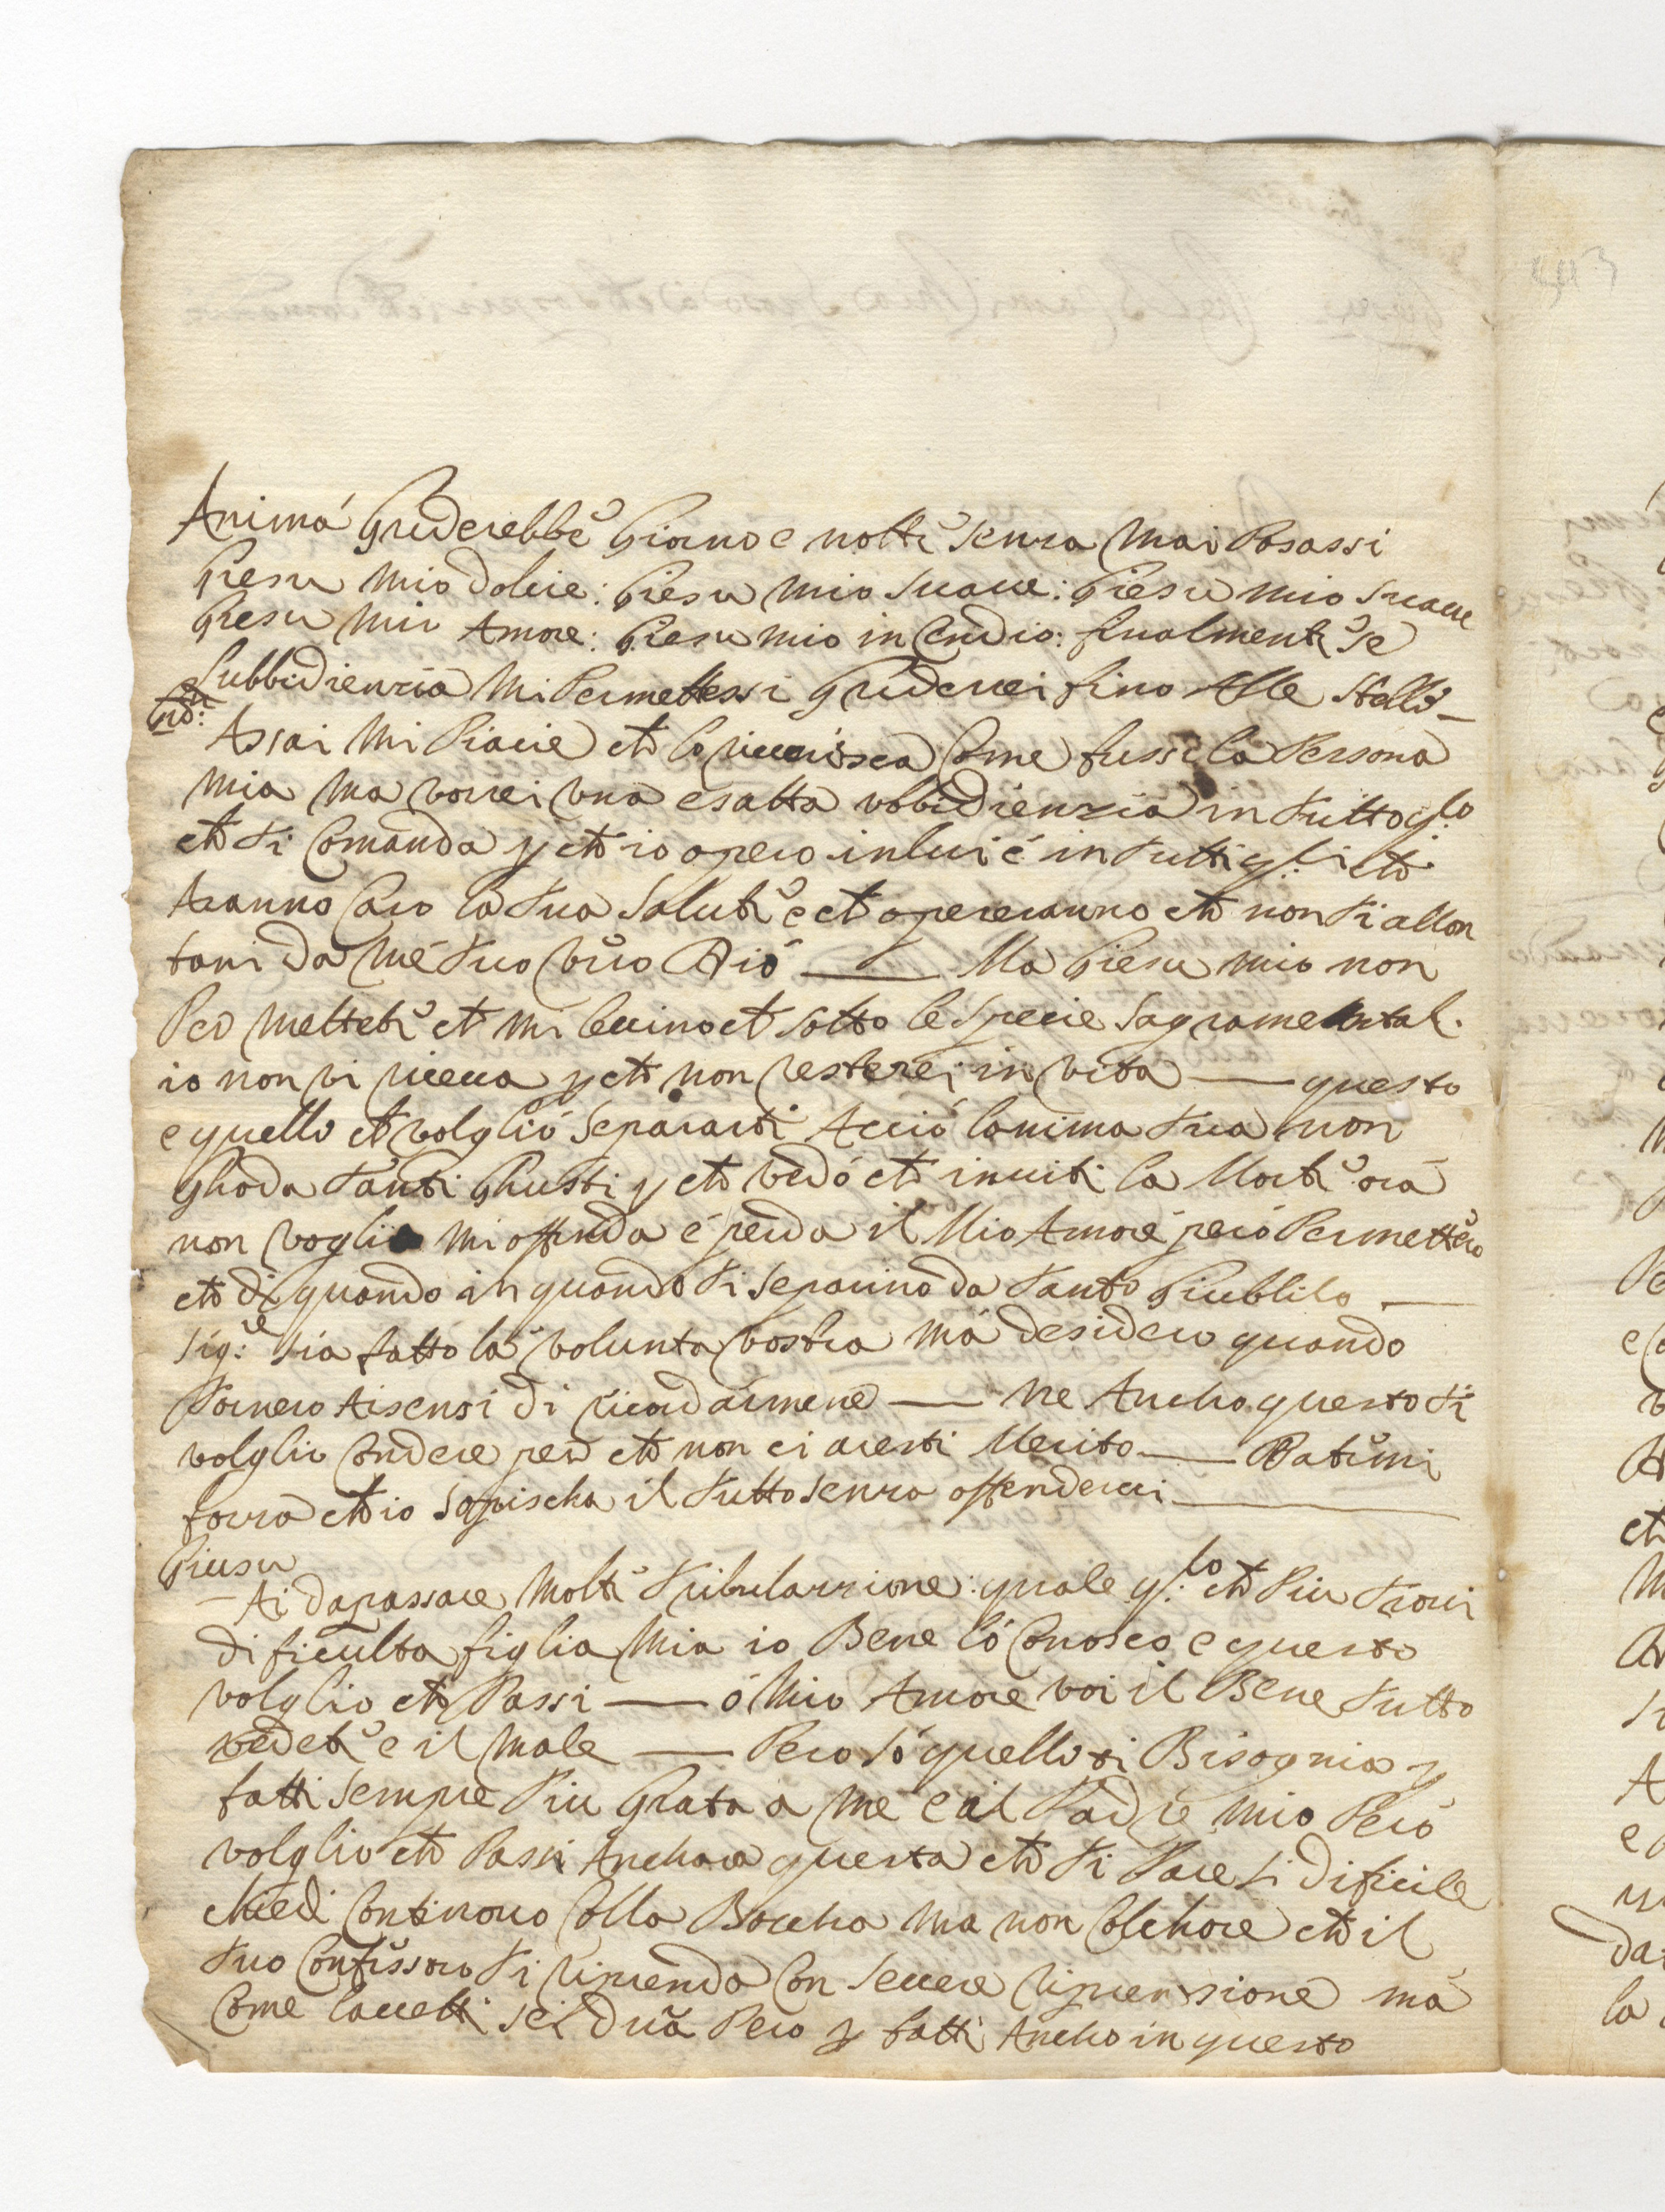 Animá Griderebbe Giorno e notte senza Mai Posassi
Giesu mio dolcie: Giesu mio suaue: Giesu mio suaue
Giesu mii Amore: Giesu mio in Cendio: finalmente se
lubbidienzia Mi Permettessi Griderrei fino Alle stelle —
Assai Mi Piacie che lo riuerisca Come fussi la Persona
mia ma vorrei una esatta ubbidienzia in tutto q.lo
che ti Comanda p che io opero in lui é in tutti q.li che
Aranno Caro la tua Salute e che opereranno che non ti allon
tani da mé tuo vero Dió — Ma Giesu mio non
Per mettete che mi leuino che sotto le specie Sagramental.
io non vi riceua p che non resterei in vita — questo
e quello che volglió separarti Acció lanima tua non
Ghoda tanti Ghusti p che vedó che inuiti la Morte orá
non voglio mi offenda é perda il Mio Amore peró Permetteró
che di quando in quando ti separino da tanto Giubbilo —
Sig:re sia fatto lá voluntá vostra má desidero quando
tornero Aisensi di ricordármene — Ne Ancho questo ti
volglio Condere però che non ci aresti Merito — Datemi
forza che io soprischa il tutto senza offenderci —
Giesu
— Ai dapassare Molte tribulazzione: quale q.lo che Piu troui
dificulta figlia Mia io Bene ló Conosco e questo
volglio che Passi — ó Mio Amore voi il Bene tutto
vedete e il male — Pero só quello ti Bisognia p
fatti sempre Piu Grata a me e al Padre mio Peró
volglio che Passi Anchora questa che ti Pare si dificile
chiedi Continouo Colla Boccha ma non Colchore che il
tuo Confissoro ti riprenda Con seuere riprensione má
Come laccetti sei dura Pero p fatti Ancho in questo